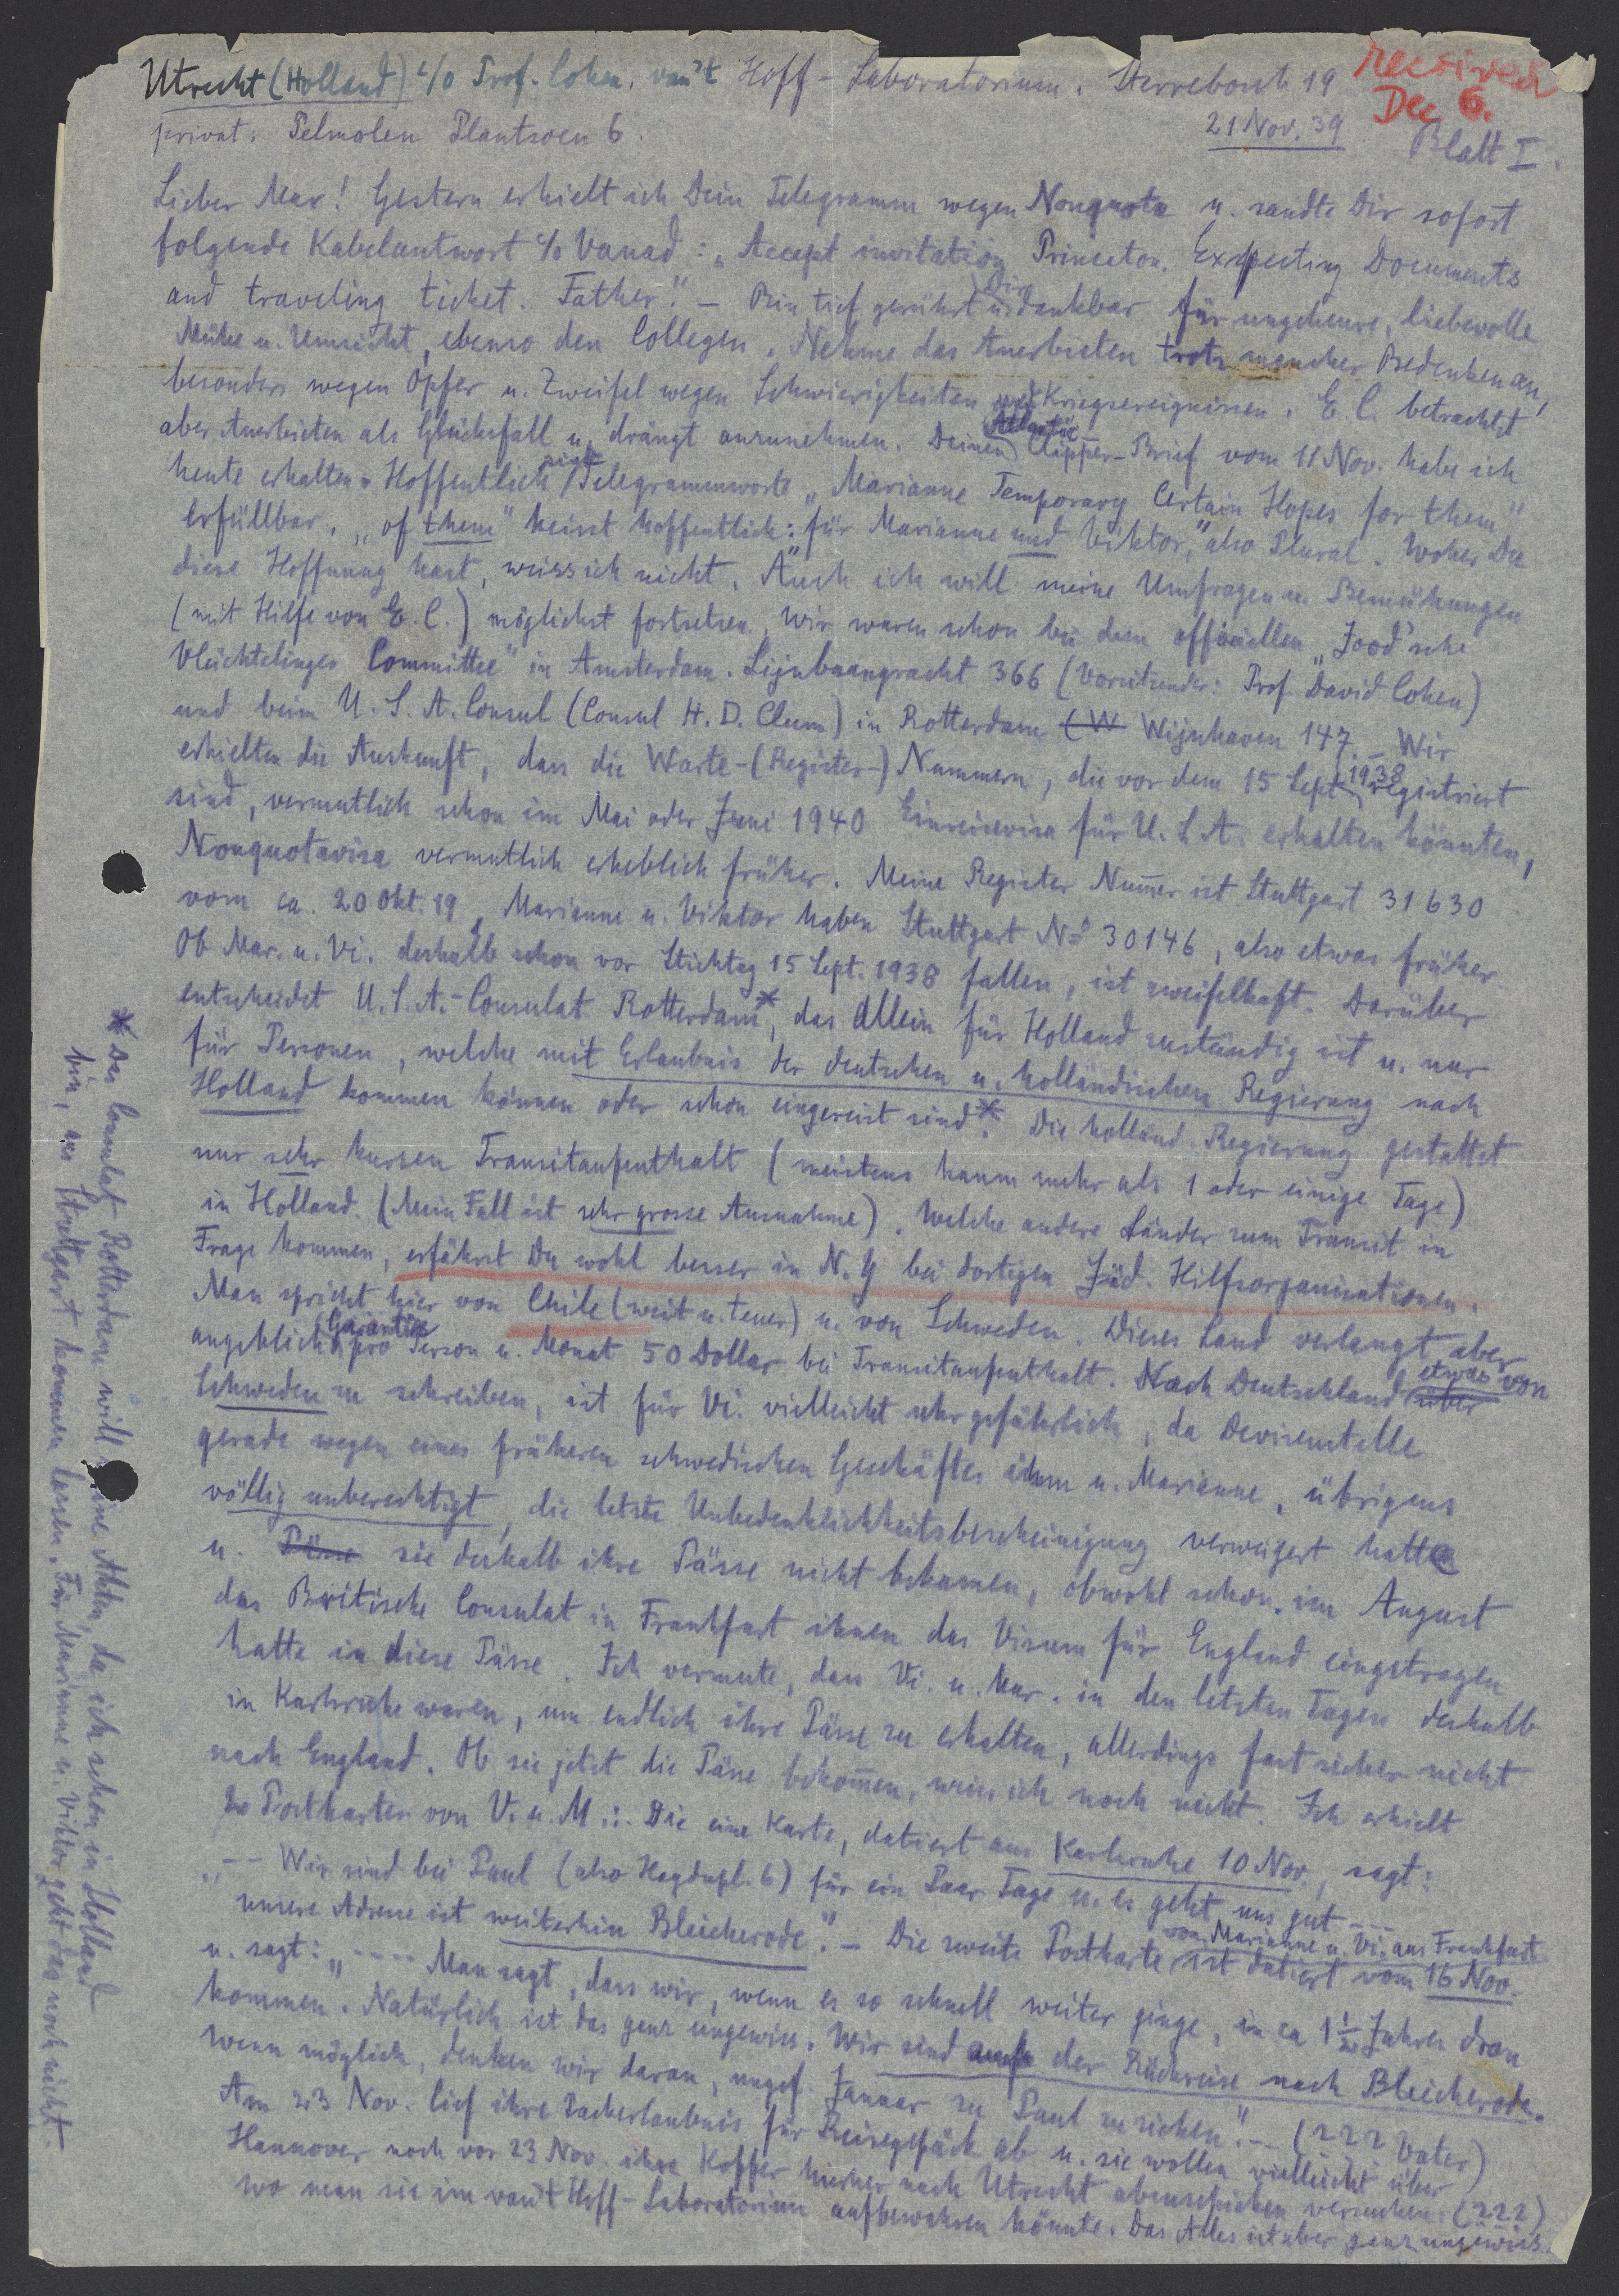 Utrecht (Holland) c/o Prof. Cohen. van't Hoff-Laboratorium. Sterrebosch 19
received
Dec 6.
privat: Pelmolen Plantsoen 6.
21 Nov. 39
Blatt I.
Lieber Max! Gestern erhielt ich Dein Telegramm wegen Nonquota u. sandte Dir sofort
folgende Kabelantwort c/o Vanad: „Accept invitation Princeton. Expecting Documents
and traveling ticket. Father." – Bin tief gerührt u. Dir dankbar für ungeheure, liebevolle
Mühe u. Umsicht, ebenso den Collegen. Nehme das Anerbieten trotz mancher Bedenken an,
besonders wegen Opfer u. Zweifel wegen Schwierigkeiten und Kriegsereignissen. E. C. betrachtet
aber Anerbieten als Glücksfall u. drängt anzunehmen. Deinen Atlantic Clipper-Brief vom 11 Nov. habe ich
heute erhalten. Hoffentlich sind Telegrammworte „Marianne Temporary Certain Hopes for them"
erfüllbar. „of them" heisst hoffentlich: „für Marianne und Viktor," also Plural. Woher Du
diese Hoffnung hast, weiss ich nicht. Auch ich will meine Umfragen u. Bemühungen
(mit Hilfe von E. C.) möglichst fortsetzen. Wir waren schon bei dem officiellen „Jood'sche
Vluchtelinges Committee" in Amsterdam. Lijnbaangracht 366 (Vorsitzender: Prof. David Cohen)
und beim U. S. A. Consul (Consul H. D. Clum) in Rotterdam (W Wijnhaven 147. – Wir
erhielten die Auskunft, dass die Warte-(Register-) Nummern, die vor dem 15 Sept. 1938 registriert
sind, vermutlich schon im Mai oder Juni 1940 Einreisevisa für U. S. A. erhalten könnten,
Nonquotavisa vermutlich erheblich früher. Meine Register Nummer ist Stuttgart 31630
vom ca. 20 Okt. 19, Marianne u. Viktor haben Stuttgart No 30146, also etwas früher.
Ob Mar. u. Vi. deshalb schon vor Stichtag 15 Sept. 1938 fallen, ist zweifelhaft. Darüber
entscheidet U. S. A.-Consulat Rotterdam*, das Allein für Holland zuständig ist u. nur
für Personen, welche mit Erlaubnis der deutschen u. holländischen Regierung nach
Holland kommen können oder schon eingereist sind*. Die holländ. Regierung gestattet
nur sehr kurzen Transitaufenthalt (meistens kaum mehr als 1 oder einige Tage)
in Holland. (Mein Fall ist sehr grosse Ausnahme). Welche andere Länder zum Transit in
Frage kommen, erfährst Du wohl besser in N. Y bei dortigen Jüd. Hilfsorganisationen.
Man spricht hier von Chile (weit u. teuer) u. von Schweden. Dieses Land verlangt aber
angeblich Garantie pro Person u. Monat 50 Dollar bei Transitaufenthalt. Nach Deutschland über etwas von
Schweden zu schreiben, ist für Vi. vielleicht sehr gefährlich, da Devisenstelle
gerade wegen eines früheren schwedischen Geschäftes ihm u. Marianne, übrigens
völlig unberechtigt, die letzte Unbedenklichkeitsbescheinigung verweigert hatte
u. Pässe sie deshalb ihre Pässe nicht bekamen, obwohl schon im August
das Britische Consulat in Frankfurt ihnen das Visum für England eingetragen
hatte in diese Pässe. Ich vermute, dass Vi. u. Mar. in den letzten Tagen deshalb
in Karlsruhe waren, um endlich ihre Pässe zu erhalten, allerdings fast sicher nicht
nach England. Ob sie jetzt die Pässe bekommen, weiss ich noch nicht. Ich erhielt
2 Postkarten von V. u. M.: Die eine Karte, datiert aus Karlsruhe 10 Nov., sagt:
„-- Wir sind bei Paul (also Haydnpl. 6) für ein Paar Tage u. es geht uns gut ---
unsere Adresse ist weiterhin Bleicherode." – Die zweite Postkarte von Marianne u. Vi. aus Frankfurt ist datiert vom 16 Nov.
u. sagt: „---- Man sagt, dass wir, wenn es so schnell weiter ginge, in ca 1½ Jahren dran
kommen. Natürlich ist das ganz ungewiss. Wir sind auf der Rückreise nach Bleicherode.
Wenn möglich, denken wir daran, ungef. Januar zu Paul zu ziehen." -- (??? Vater)
Am 23 Nov. lief ihre Packerlaubnis für Reisegepäck ab u. sie wollen vielleicht über
Hannover noch vor 23 Nov. ihre Koffer hierher nach Utrecht abzuschicken versuchen. (???)
wo man sie im van't Hoff-Laboratorium aufbewahren könnte. Das Alles ist aber ganz ungewiss.
* Das Consulat Rotterdam will meine Akten, da ich schon in Holland
bin, aus Stuttgart kommen lassen. Für Marianne u. Viktor geht das noch nicht.